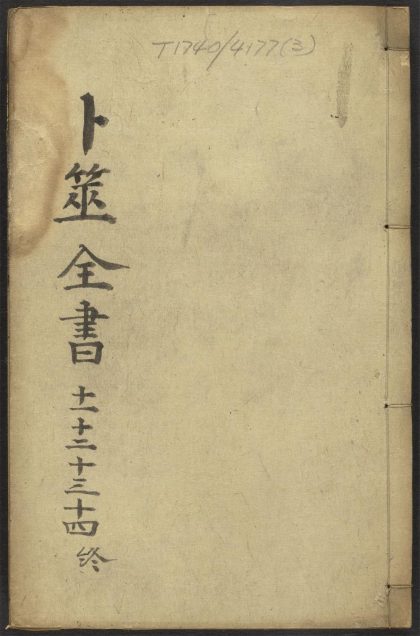 T1740/4177(3)
卜筮全書
十一 十二 十三 十四 终